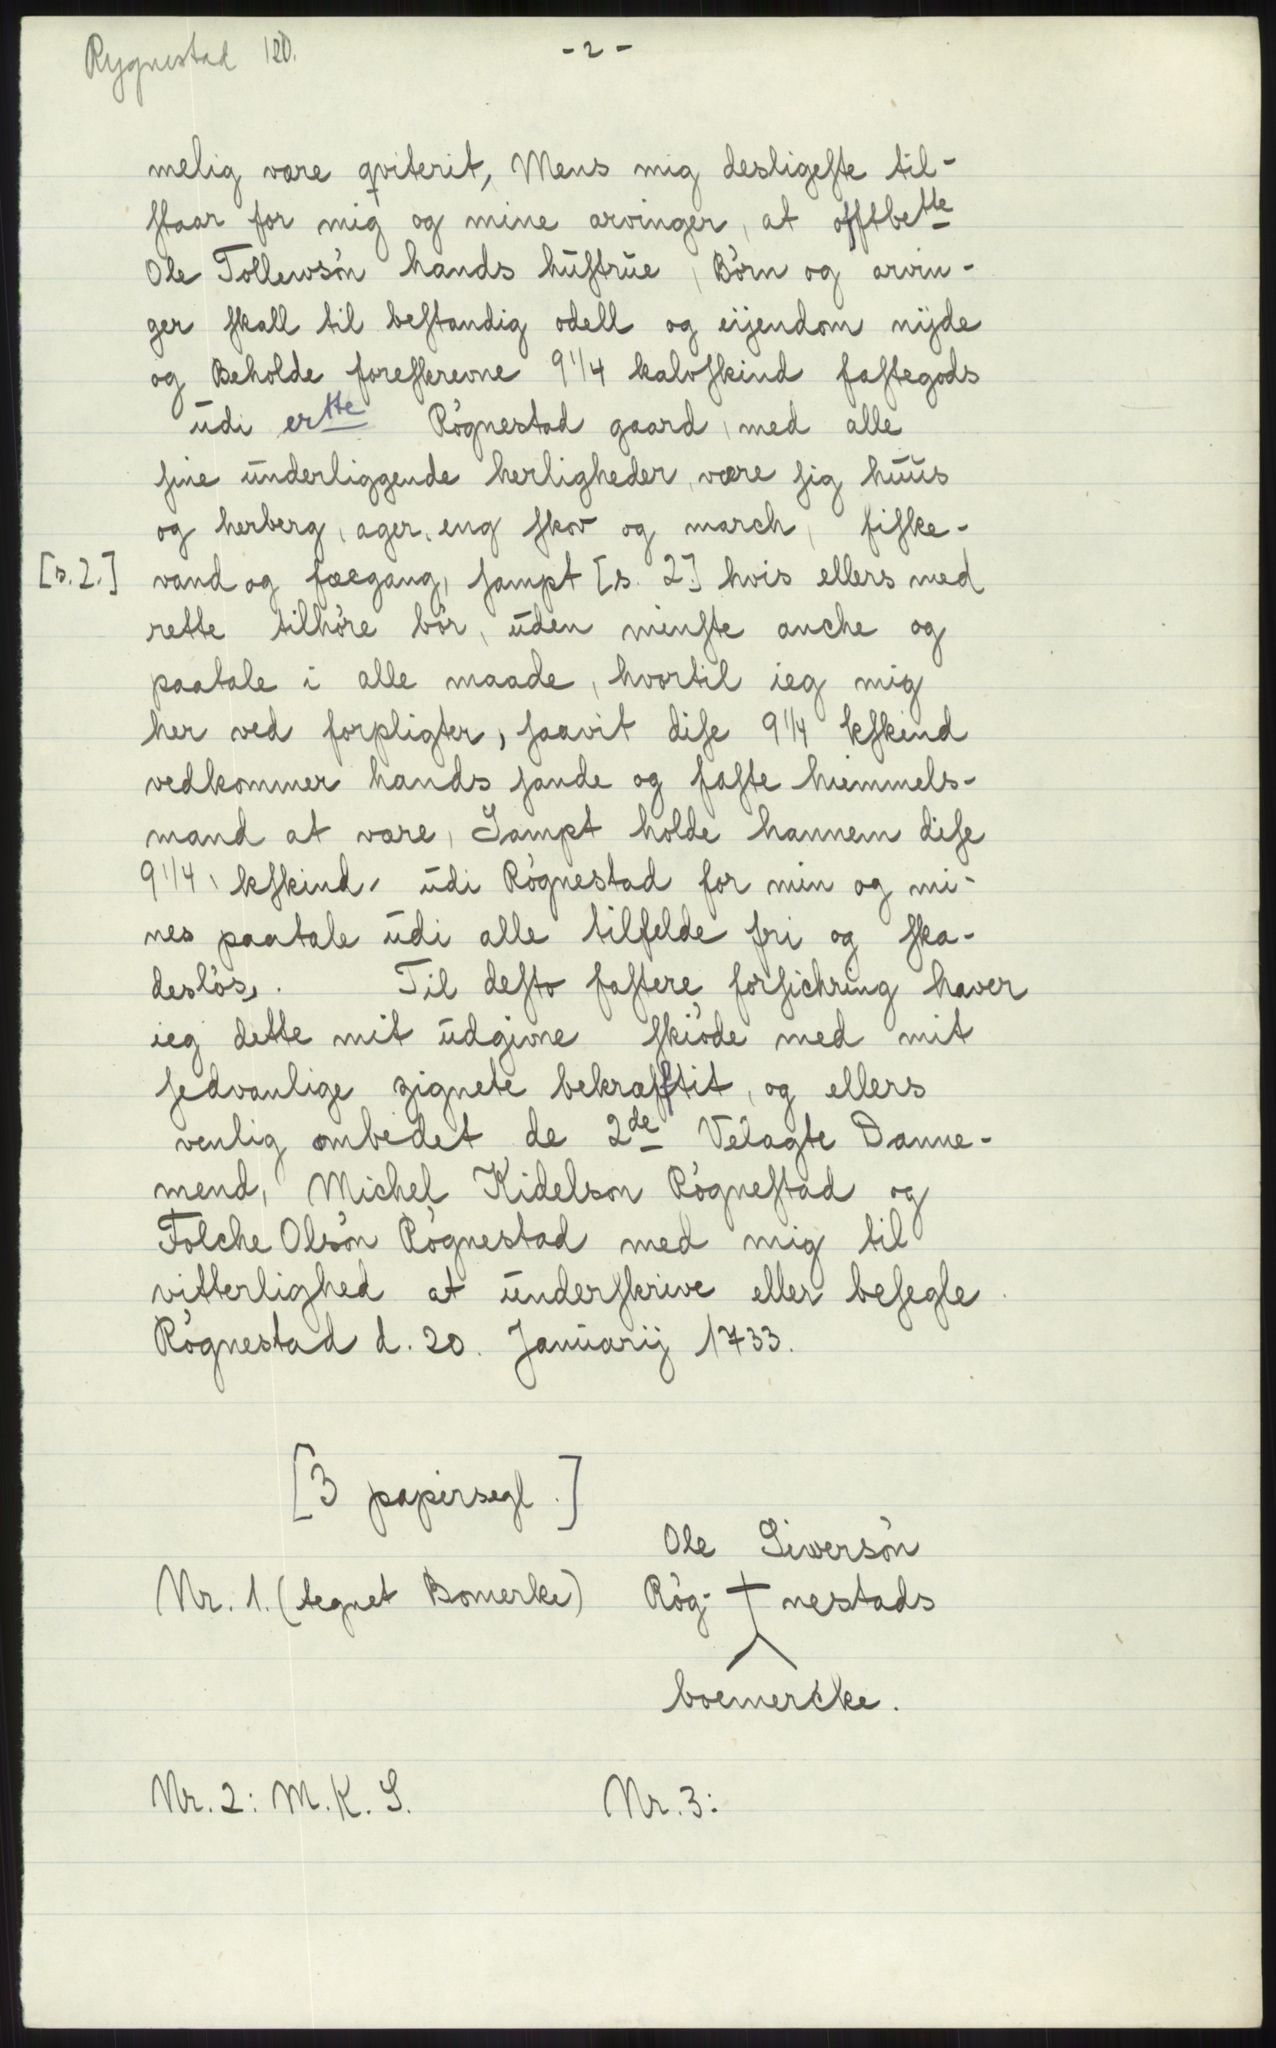 Rygnestad 120.
- 2 -
melig være qviterit, Mens mig desligeste til-
staar for mig og mine arvinger, at offtbette
Ole Tollewsön hands hustrue, Börn og arvin-
ger skall til bestandig odell og eijendom nijde
og Beholde foreskrevne 9 1/4 kalvskind fastegods
udi ertte Rögnestad gaard, med alle
sine underliggende herligheder, være sig huus
og herberg, ager, eng skov og march, fiske-
[s. 2.] vand og fæegang, sampt [s. 2.] hvis ellers med
rette tilhöre bör, uden minste anche og
paatale i alle maade, hvortil ieg mig
her ved forpligter, saavit dise 9 1/4 kskind
vedkommer hands sande og faste hiemmels-
mand at være, Sampt holde hannem dise
9 1/4, kskind, udi Rögnestad for min og mi-
nes paatale udi alle tilfelde fri og ska-
deslös,. Til desto fastere forsichring haver
ieg dette mit udgivne skiöde med mit
sedvanlige zignete bekræfftit, og ellers
venlig ombedet de 2de Velagte Danne-
mend, Michel Kidelson Rögnestad og
Folche Olsön Rögnestad med mig til
vitterlighed at underskrive eller besegle
Rögnestad d. 20. Januarij 1733.
[3 papirsegl.]
Ole Siwersön
Nr. 1. (tegnet Bomerke) Rög- nestads
boemercke.
Nr. 2: M. K. S. Nr. 3: